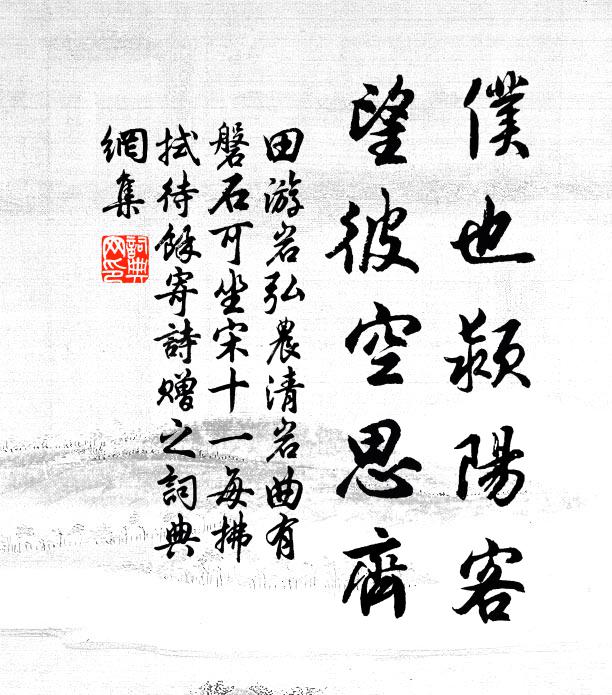 僕也潁陽客
望彼空思齊
田游岩弘農清岩曲有
磐石可坐宋十一每拂
拭待餘寄詩贈之詞典
網集
詞典
网印